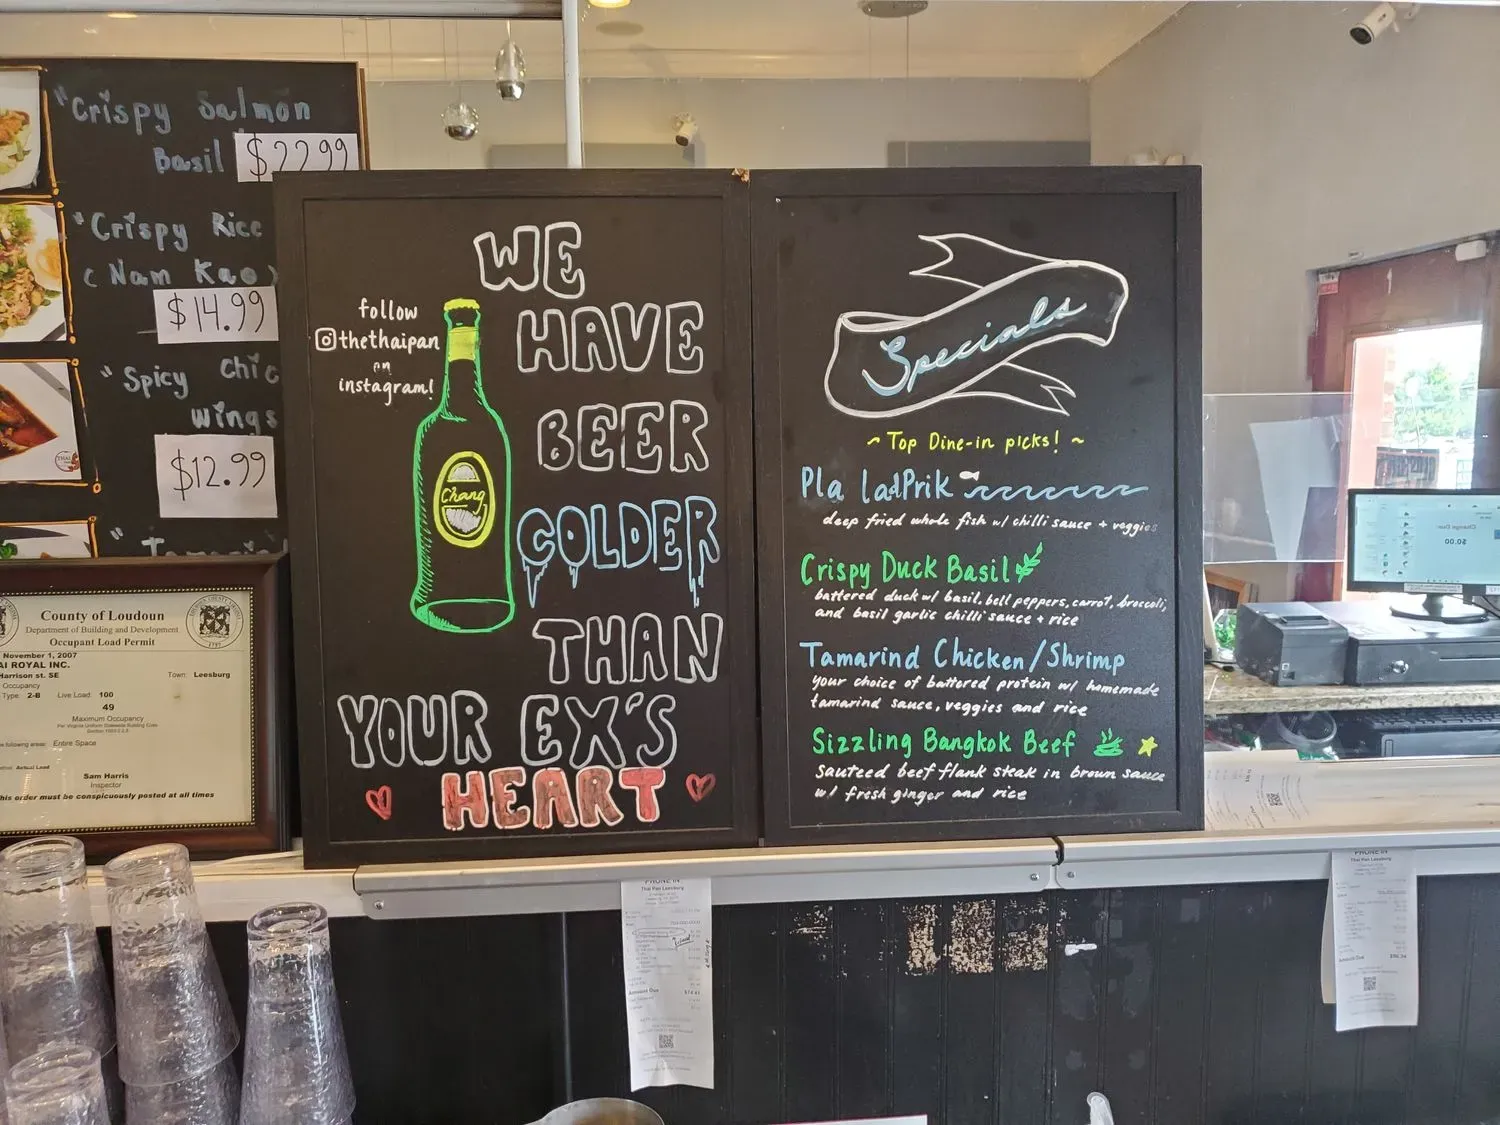 "Crispy Salmon
Basil
$22.99
"Crispy Rice
(Nam Kao)
$14.99
"Spicy Chic
wings
$12.99
"
County of Loudoun
Department of Building and Development
Occupant Load Permit
November 1, 2007
AI ROYAL INC.
Harrison st. SE
Town: Leesburg
Occupancy
Type: 2-B Live Load: 100
49
Maximum Occupancy
Entire Space
Actual Load
Sam Harris
Inspector
his order must be conspicuously posted at all times
follow
@thethaipan
on
instagram!
Chang
WE
HAVE
BEER
COLDER
THAN
YOUR EX'S
HEART
Specials
~ Top Dine-in picks! ~
Pla LadPrik
deep fried whole fish w/ chilli sauce + veggies
Crispy Duck Basil
battered duck w/ basil, bell peppers, carrot, broccoli,
and basil garlic chilli sauce + rice
Tamarind Chicken/Shrimp
your choice of battered protein w/ homemade
tamarind sauce, veggies and rice
Sizzling Bangkok Beef
sauteed beef flank steak in brown sauce
w/ fresh ginger and rice
PHONE IN
Thai Pan Leesburg
Amount Due
PHONE IN
Thai Pan Leesburg
Amount Due
Change Due:
$0.00